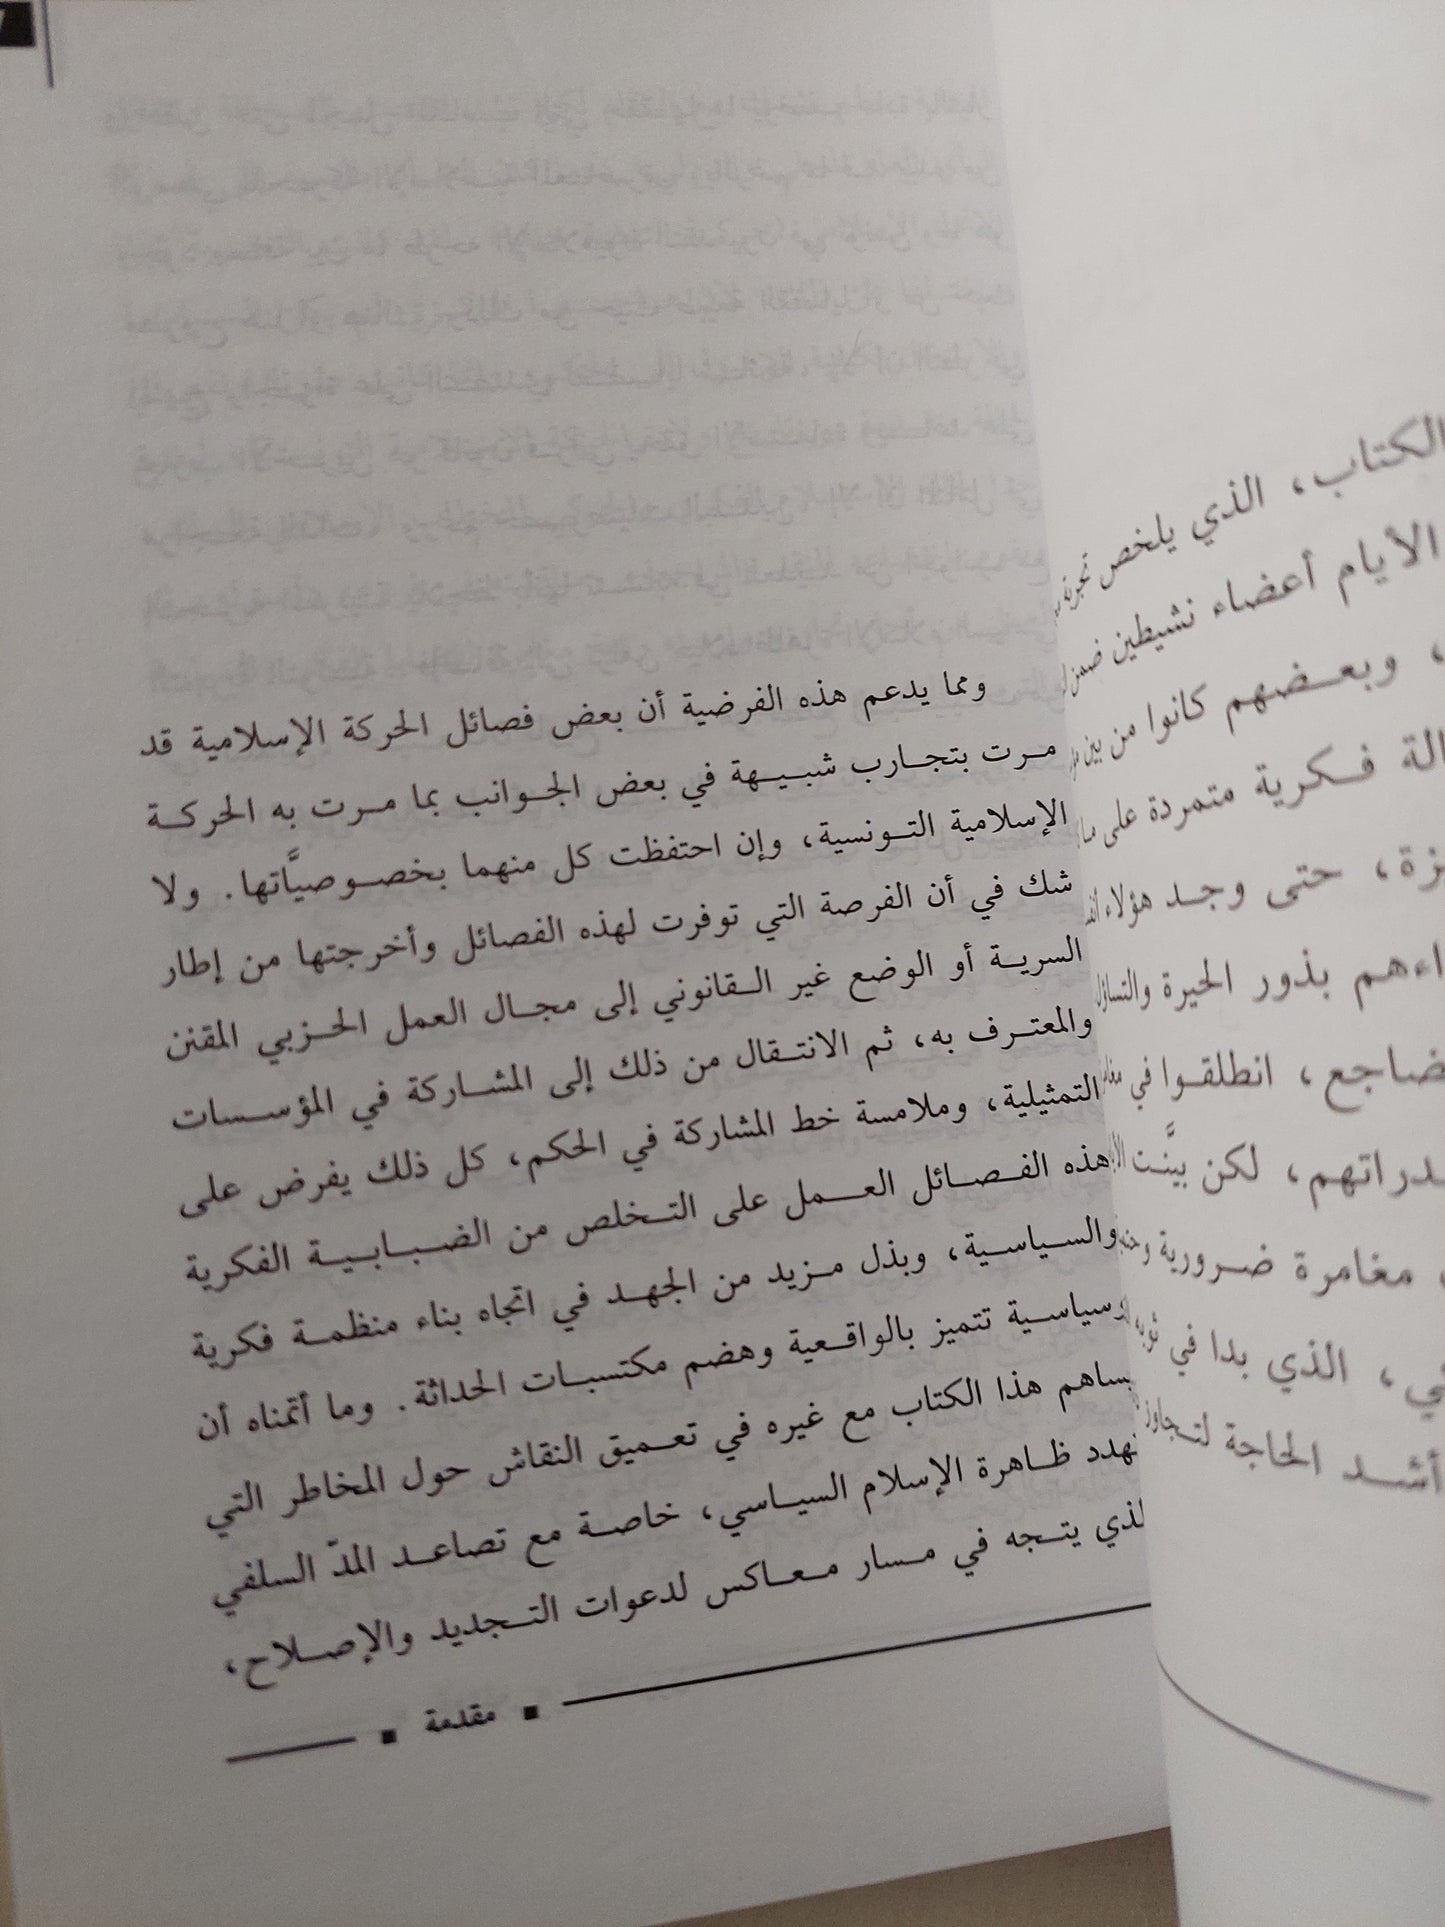 الكتاب، الذي يلخص تجربة
الأيام أعضاء نشيطين ضمن
، وبعضهم كانوا من بين
فكرية متمردة على
، حتى وجد هؤلاء
بذور الحيرة والتساؤل
، انطلقوا في
، لكن بيَّنت
مغامرة ضرورية
، الذي بدا في
أشد الحاجة لتجاوز
ومما يدعم هذه الفرضية أن بعض فصائل الحركة الإسلامية قد
مرت بتجارب شبيهة في بعض الجوانب بما مرت به الحركة
الإسلامية التونسية، وإن احتفظت كل منهما بخصوصيَّاتها. ولا
شك في أن الفرصة التي توفرت لهذه الفصائل وأخرجتها من إطار
السرية أو الوضع غير القانوني إلى مجال العمل الحزبي المقنن
والمعترف به، ثم الانتقال من ذلك إلى المشاركة في المؤسسات
التمثيلية، وملامسة خط المشاركة في الحكم، كل ذلك يفرض على
هذه الفصائل العمل على التخلص من الضبابية الفكرية
والسياسية، وبذل مزيد من الجهد في اتجاه بناء منظمة فكرية
وسياسية تتميز بالواقعية وهضم مكتسبات الحداثة. وما أتمناه أن
يساهم هذا الكتاب مع غيره في تعميق النقاش حول المخاطر التي
تهدد ظاهرة الإسلام السياسي، خاصة مع تصاعد المدّ السلفي
الذي يتجه في مسار معاكس لدعوات التجديد والإصلاح،
مقدمة